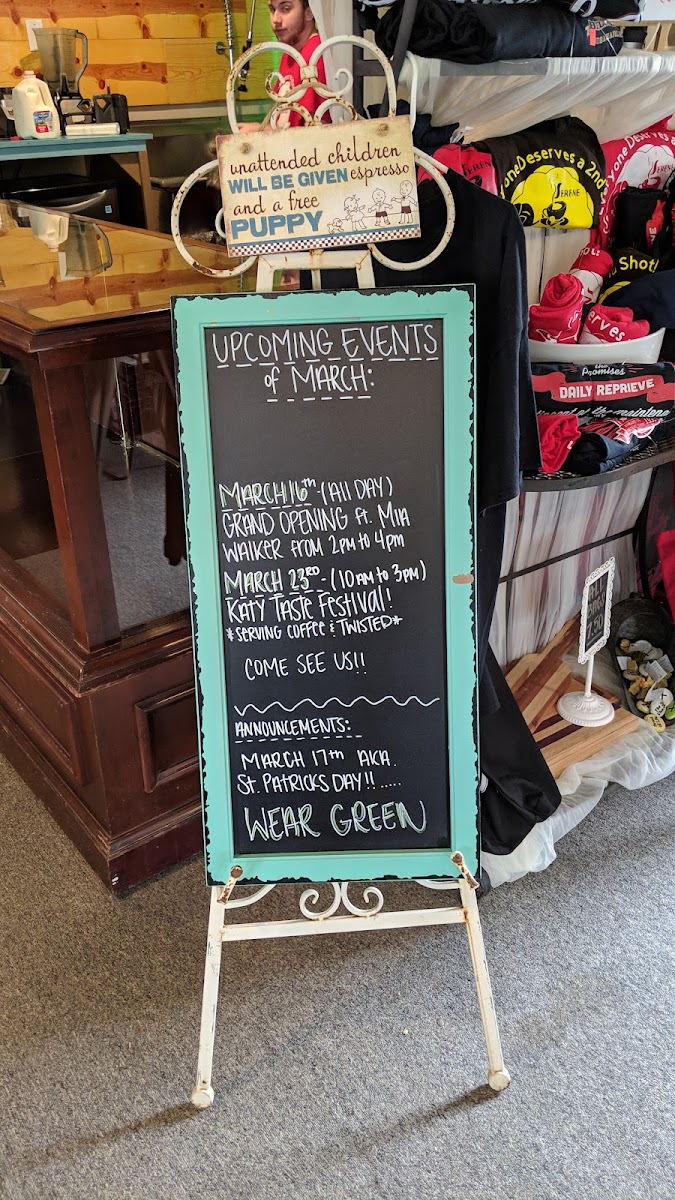 unattended children
WILL BE GIVEN espresso
and a free
PUPPY
UPCOMING EVENTS
of MARCH:
MARCH 16th - (All DAY)
GRAND OPENING ft. MIA
WALKER from 2pm to 4pm
MARCH 23RD - (10AM to 3PM)
KATY TASTE Festival!
*SERVING COFFEE & TWISTED*
COME SEE US!!
ANNOUNCEMENTS:
MARCH 17th AKA.
ST. PATRICKS DAY!!.....
WEAR GREEN
oneDeserves a 2nd
SERENE
yone Deserves a
SERENE
Shot!
the Promises
DAILY REPRIEVE